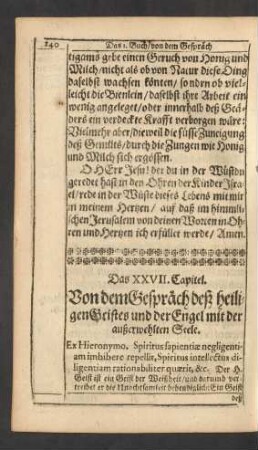 140
Das 1. Buch / von dem Gespräch
tigams gebe einen Geruch von Honig und
Milch / nicht als ob von Natur diese Ding
daselbst wachsen könten / sondern ob viel-
leicht die Bienlein / daselbst ihre Arbeit ein
wenig angeleget / oder innerhalb deß Geä-
ders ein verdeckte Krafft verborgen wäre:
Vielmehr aber / dieweil die süsse Zuneigung
deß Gemüts / durch die Zungen wie Honig
und Milch sich ergossen.
O HErr Jesu! der du in der Wüsten
geredet hast in den Ohren der Kinder Isra-
el / rede in der Wüste dieses Lebens mit mir
in meinem Hertzen / auf daß im himmli-
schen Jerusalem von deinen Worten in Oh-
ren und Hertzen ich erfüllet werde / Amen.
Das XXVII. Capitel.
Von dem Gespräch deß heili-
gen Geistes und der Engel mit der
außerwehlten Seele.
Ex Hieronymo. Spiritus sapientiæ negligenti-
am imbibere repellit, Spiritus intellectus di-
ligentiam rationabiliter quærit, &c. Der H.
Geist ist ein Geist der Weißheit / und darumb ver-
treibet er die Unachtsamkeit behendiglich: Ein Geist
deß